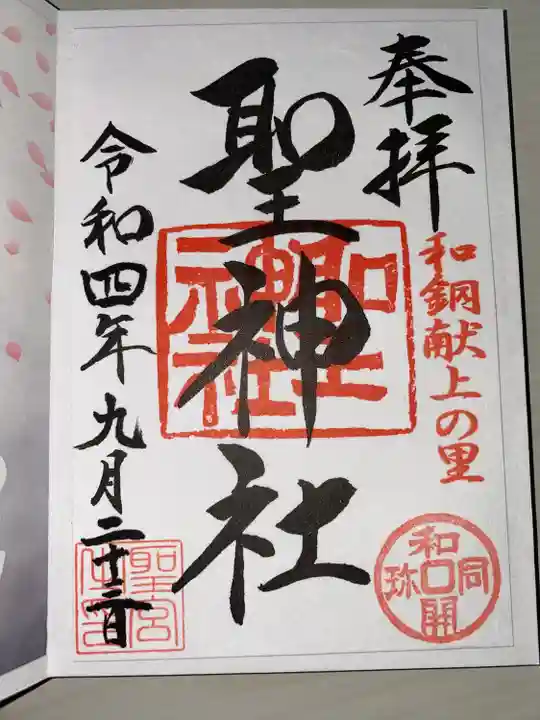 奉拝
和銅献上の里
和同開珎
聖神社
聖神社
令和四年九月二十三日